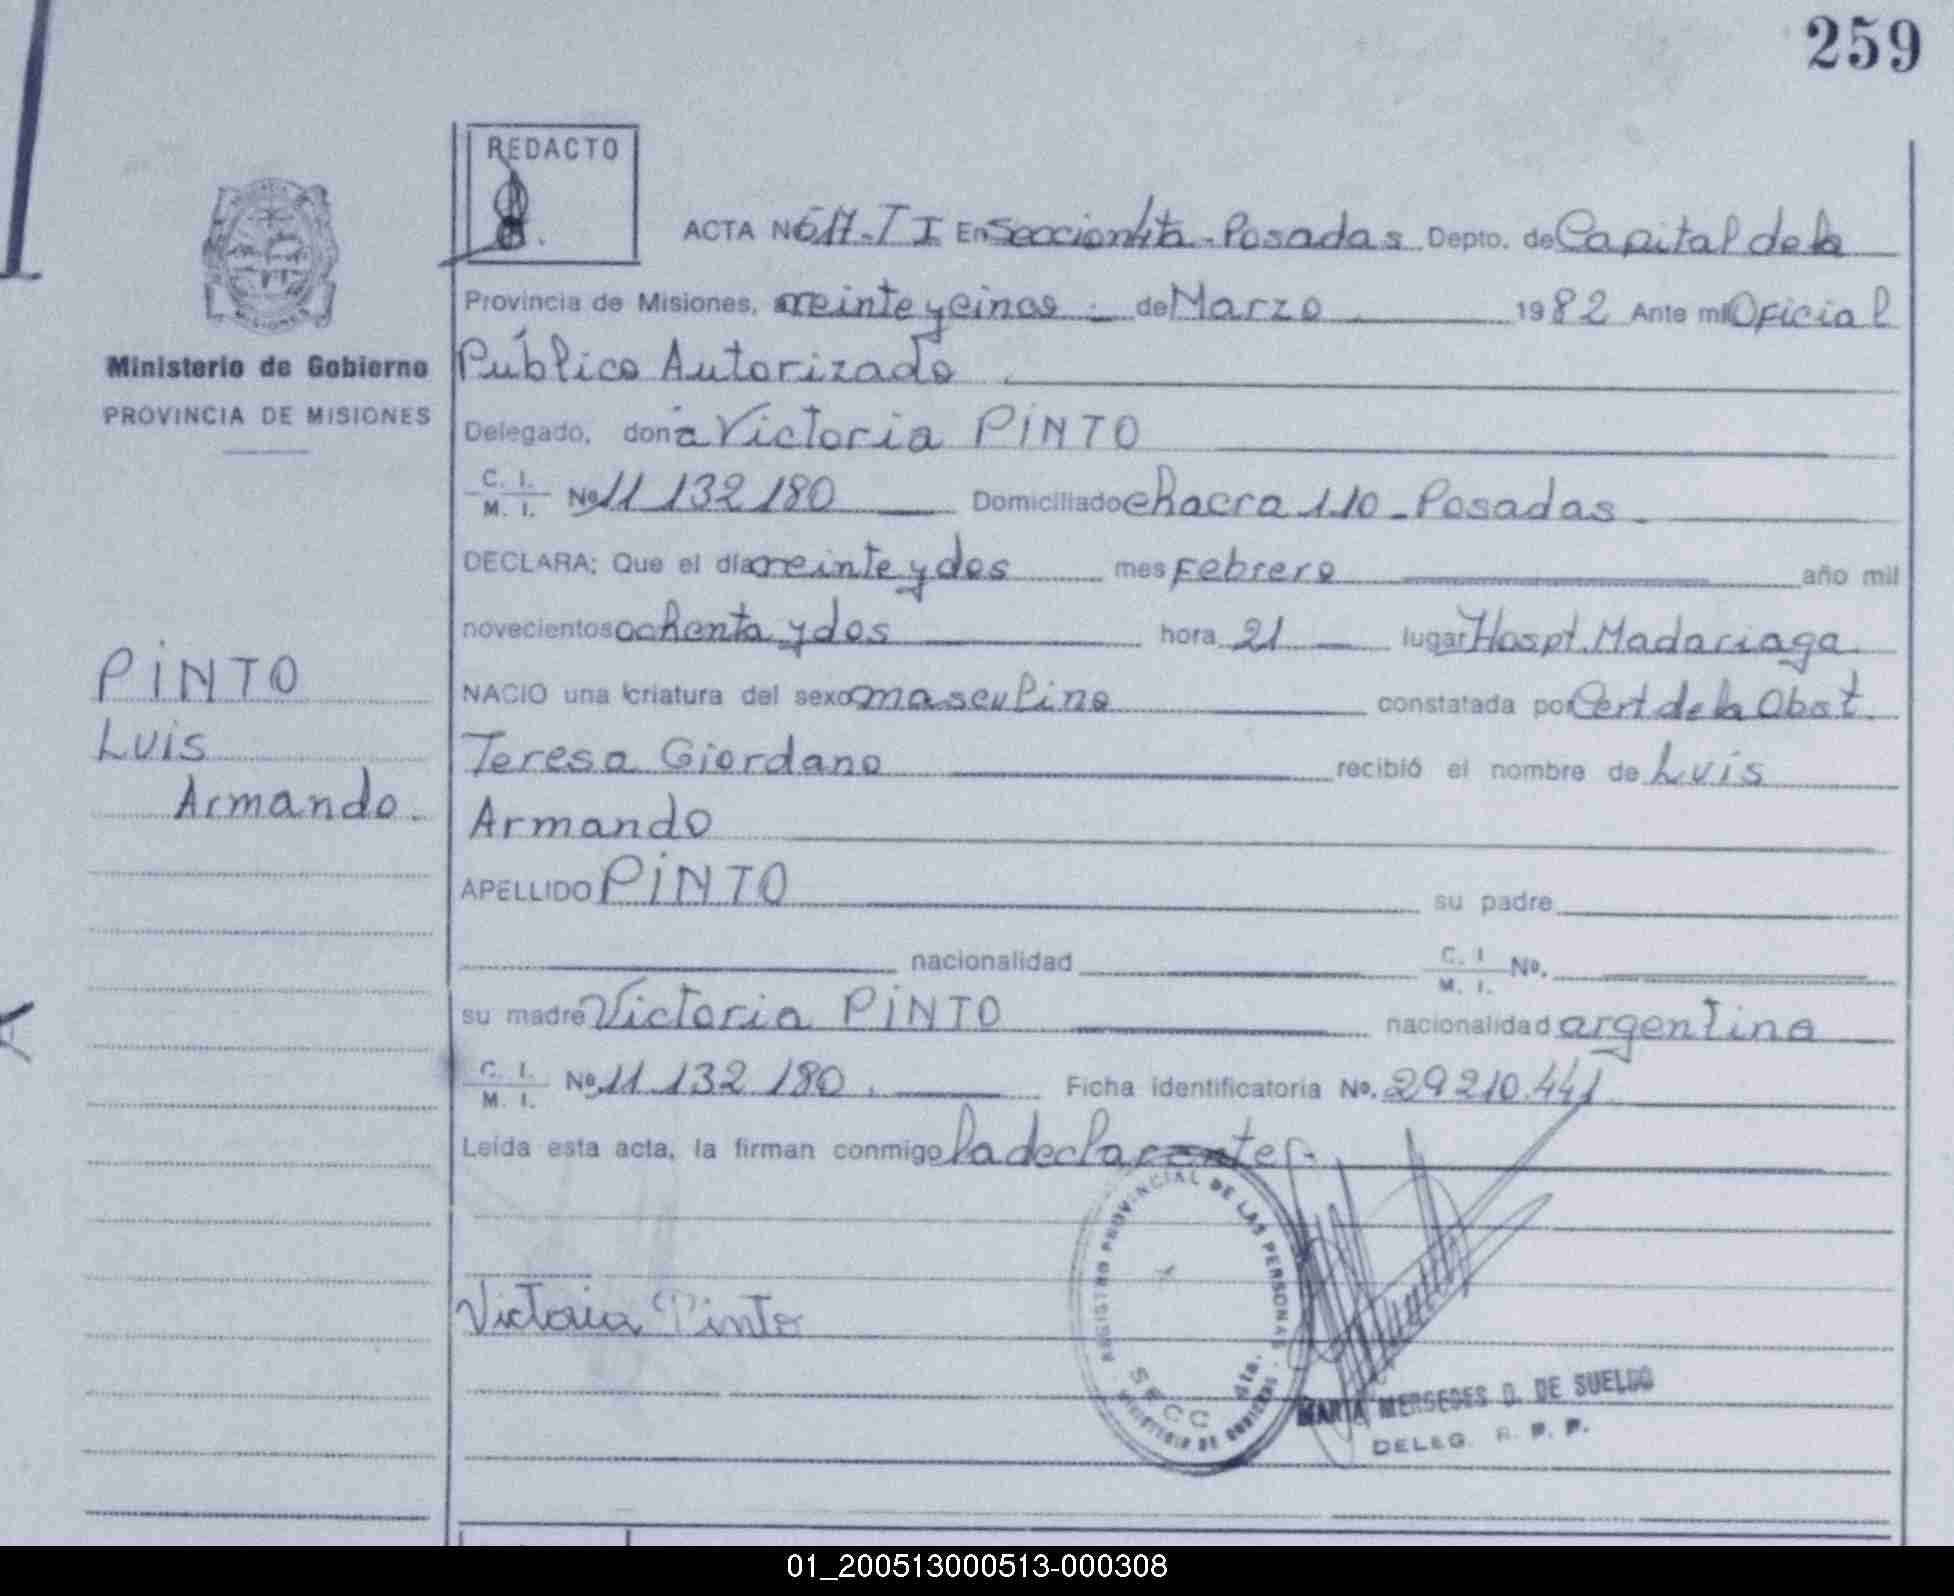 259
REDACTO
ACTA Nº 617-T I En Seccion 4ta - Posadas Depto. de Capital de la
Provincia de Misiones, veinte y cinco - de Marzo 1982 Ante mi Oficial
Ministerio de Gobierno
Público Autorizado
PROVINCIA DE MISIONES
Delegado, doña Victoria PINTO
C. I.
M. I. Nº 11 132 180 Domiciliado chacra 110 - Posadas -
DECLARA: Que el día veinte y dos mes Febrero año mil
novecientos ochenta y dos hora 21 lugar Hospt. Madariaga
PINTO
Luis
Armando.
NACIO una criatura del sexo masculino constatada por Cert de la Obst.
Teresa Giordano recibió el nombre de Luis
Armando
APELLIDO PINTO su padre
nacionalidad C. I. M. I. Nº.
su madre Victoria PINTO nacionalidad argentina
C. I.
M. I. Nº 11.132.180. Ficha identificatoria Nº. 29210.441
Leída esta acta, la firman conmigo la declarante.-
Victoria Pinto
REGISTRO PROVINCIAL DE LAS PERSONAS
SECC 4ta.
MINISTERIO DE GOBIERNO
MARIA MERSEDES D. DE SUELDO
DELEG. R. P. P.
01_200513000513-000308